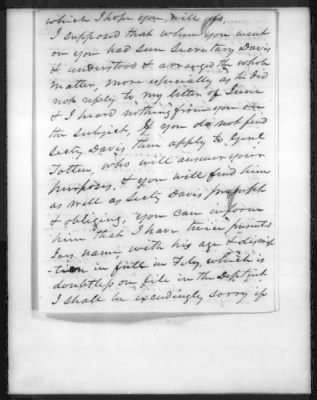 which I hope you will do.
I supposed that when you went
on you had seen Secretary Davis
& understood & arranged the whole
matter, more especially as he did
not reply to my letter of June
& I heard nothing from you on
the subject, If you do not find
Secty Davis then apply to Genl
Totten, who will answer your
purposes, & you will find him
as well as Secty Davis prompt
& obliging, you can inform
him that I have twice presented
Jas. name, with his age & descrip
-tion in full in Feby, which is
doubtless on file in the Deptmt
I shall be exceedingly sorry if